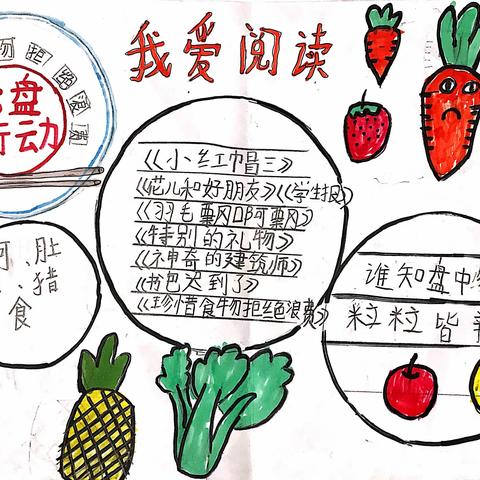 我爱阅读
盘
行动
《小红帽三》
《花儿和好朋友》《学生报》
《羽毛飘啊飘》
《特别的礼物》
《神奇的建筑师》
《书包迟到了》
《珍惜食物拒绝浪费》
肚
猪
食
谁知盘中
粒粒皆